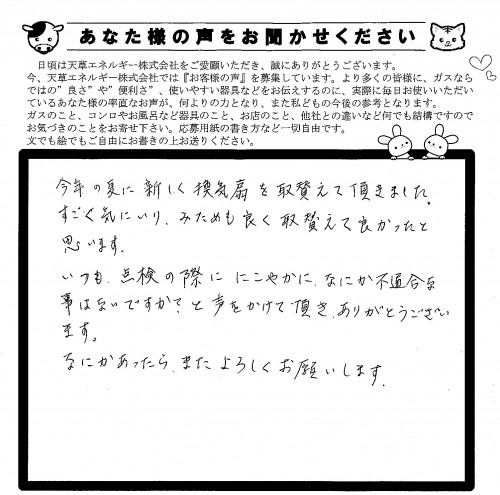 あなた様の声をお聞かせください
日頃は天草エネルギー株式会社をご愛願いただき、誠にありがとうございます。
今、天草エネルギー株式会社では『お客様の声』を募集しています。より多くの皆様に、ガスなら
ではの”良さ”や”便利さ”、使いやすい器具などをお伝えするのに、実際に毎日お使いいただい
ているあなた様の率直なお声が、何よりの力となり、また私どもの今後の参考となります。
ガスのこと、コンロやお風呂など器具のこと、お店のこと、他社との違いなど何でも結構ですので
お気づきのことをお寄せ下さい。応募用紙の書き方など一切自由です。
文でも絵でもご自由にお書きの上お送りください。
今年の夏に新しく換気扇を取賛えて頂きました。
すごく気にいり、みためも良く取賛えて良かったと
思います。
いつも、点検の際ににこやかに、なにか不適合な
事はないですか？と声をかけて頂き、ありがとうござい
ます。
なにかあったら、またよろしくお願いします。